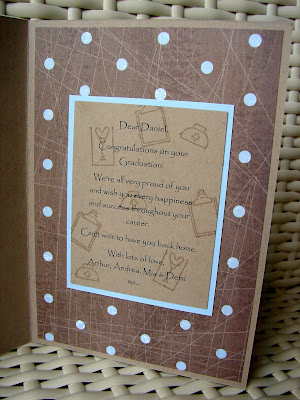 Dear Daniel,
Congratulations on your
Graduation.
We're all very proud of you
and wish you every happiness
and success throughout your
career.
Can't wait to have you back home.
With lots of love,
Arthur, Andrea, Mia & Demi
xo...